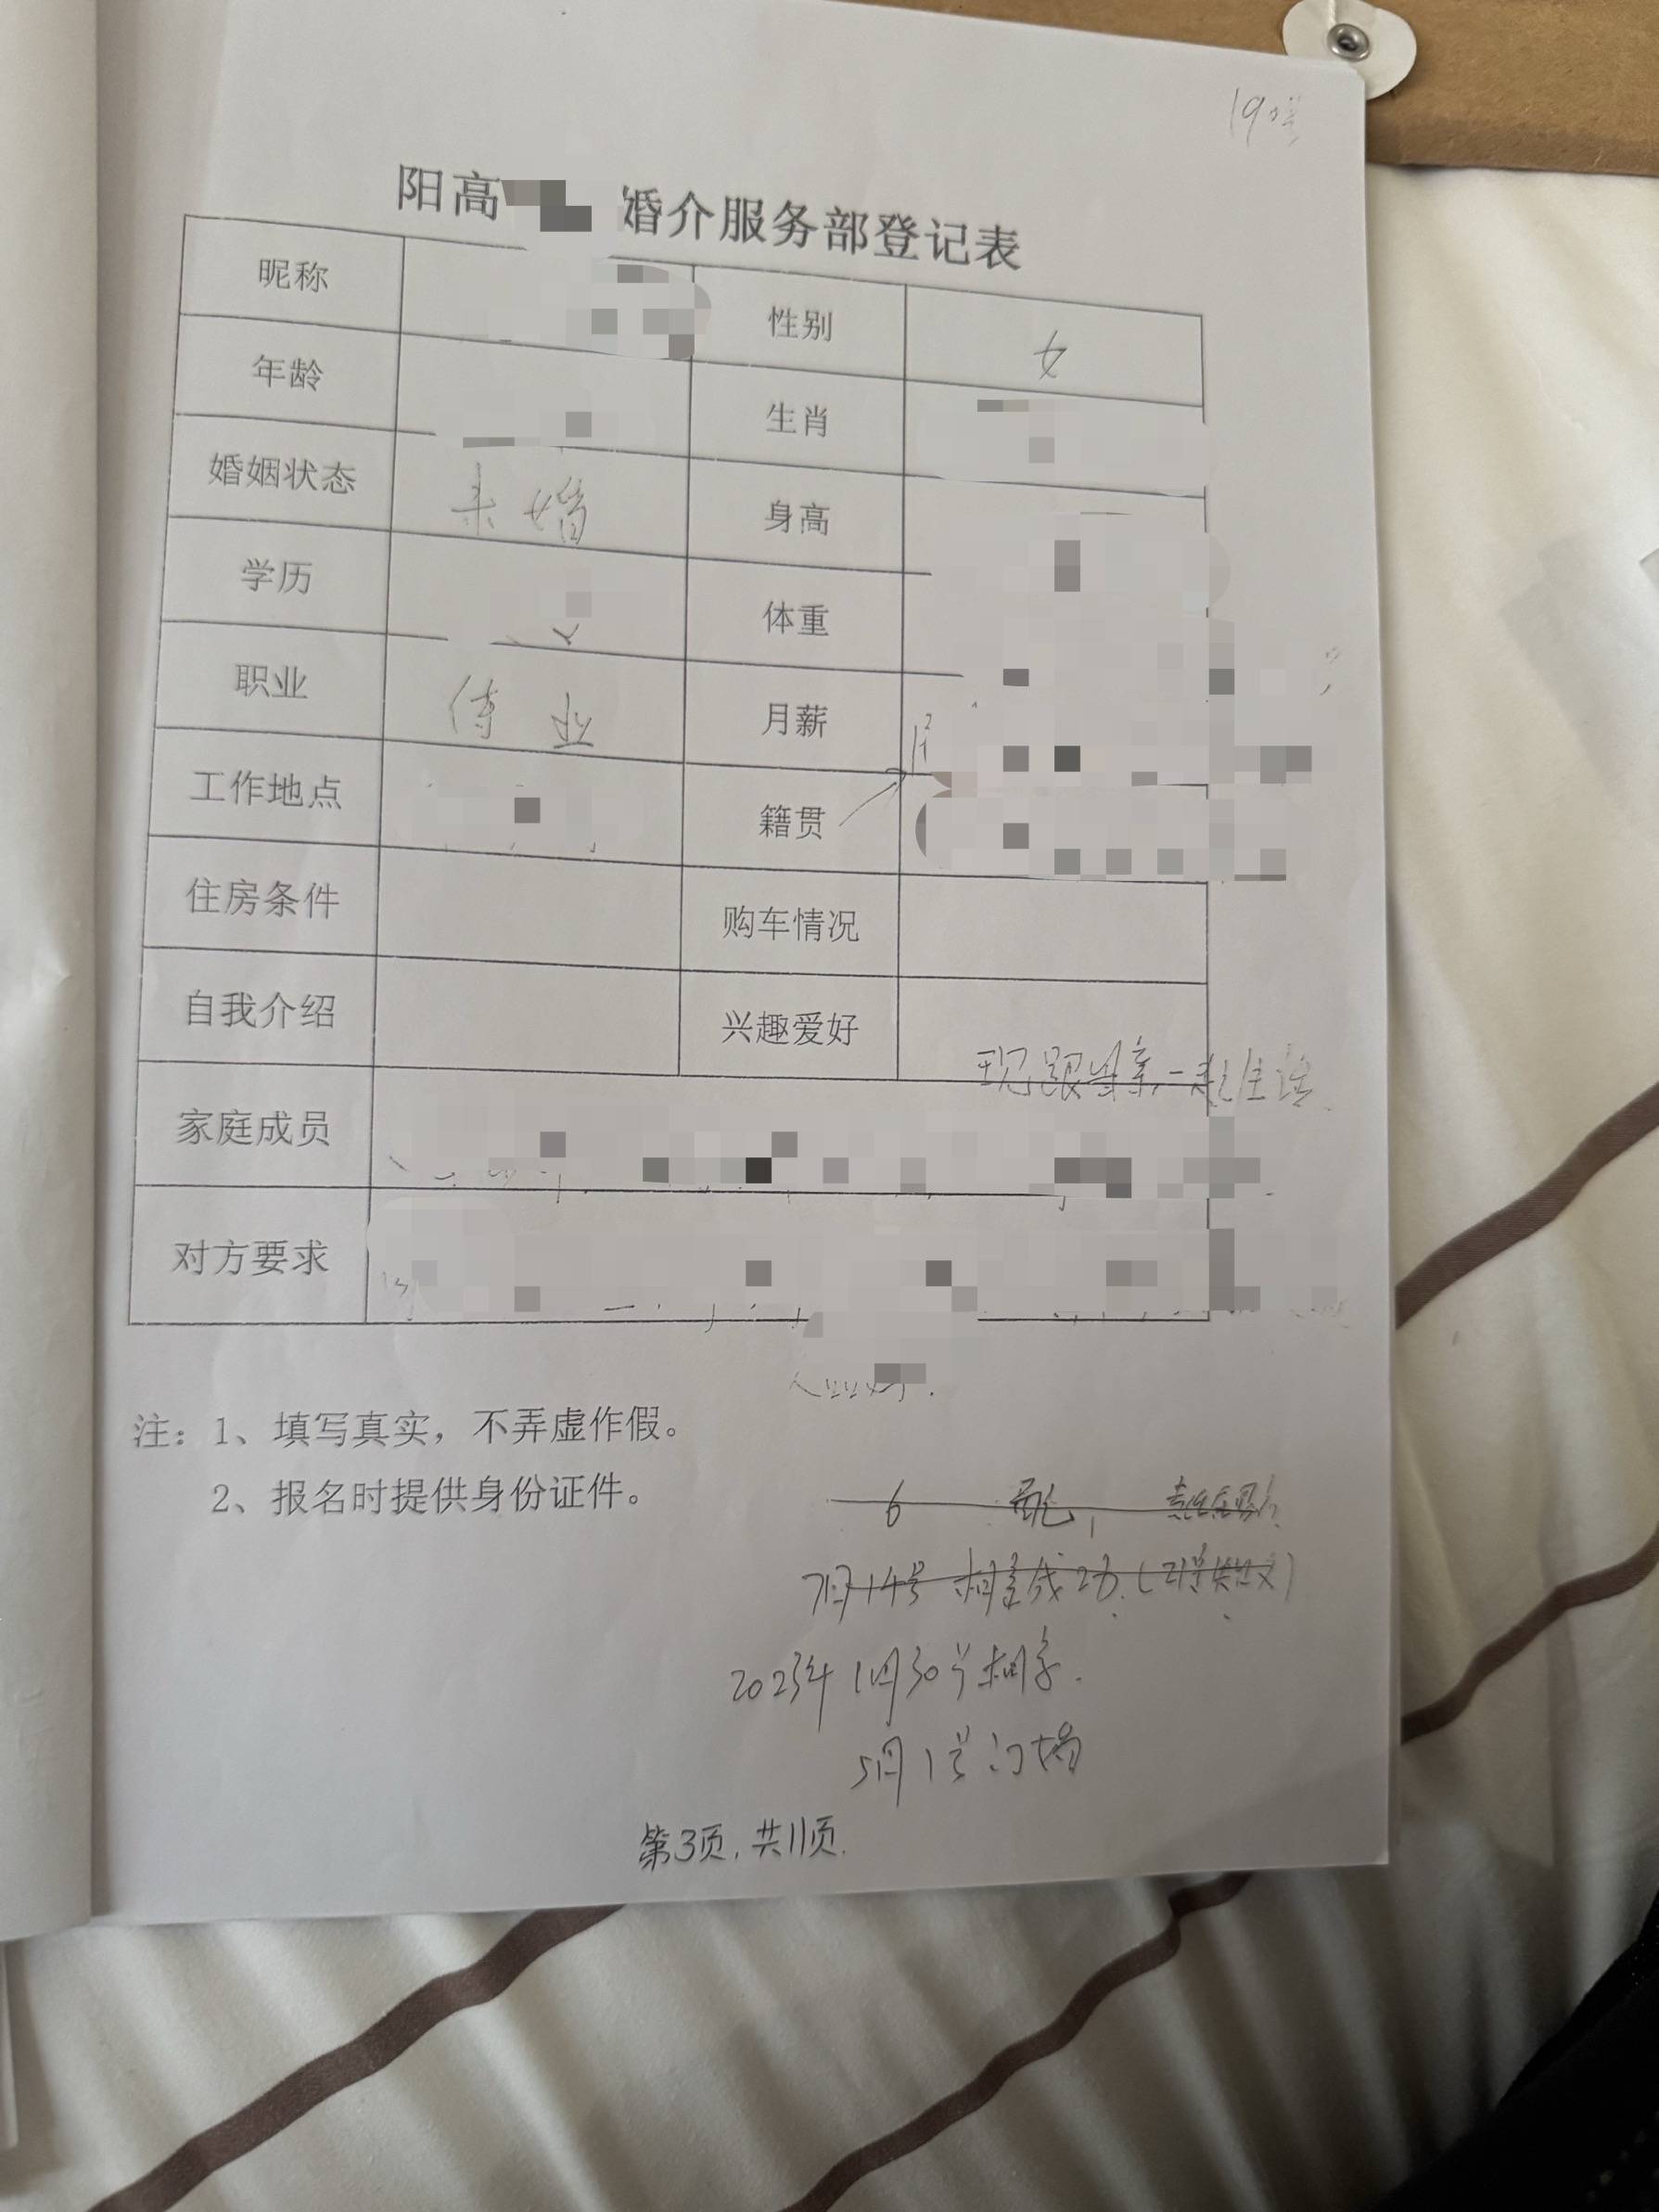 19号
阳高 婚介服务部登记表
昵称 性别 女
年龄 生肖
婚姻状态 未婚 身高
学历 体重
职业 待业 月薪
工作地点 籍贯
住房条件 购车情况
自我介绍 兴趣爱好
现跟母亲一起生活
家庭成员
对方要求
注：1、填写真实，不弄虚作假。
2、报名时提供身份证件。
6
7月14号相亲成功
2023年1月30号相亲.
5月1号订婚
第3页，共11页.